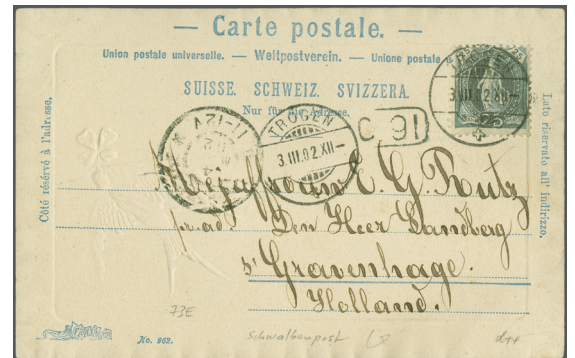 — Carte postale. —
Union postale universelle. — Weltpostverein. — Unione postale
SUISSE. SCHWEIZ. SVIZZERA.
Nur für die Adresse.
Côté réservé à l'adresse.
Lato riservato all' indirizzo.
25
TROGEN
3.III.02.XII—
TROGEN
3.III.02.XII—
C 91
E. G. Rutz
Den Heer Landberg
s' Gravenhage.
Holland.
73E
No. 962.
Schwalbenpost